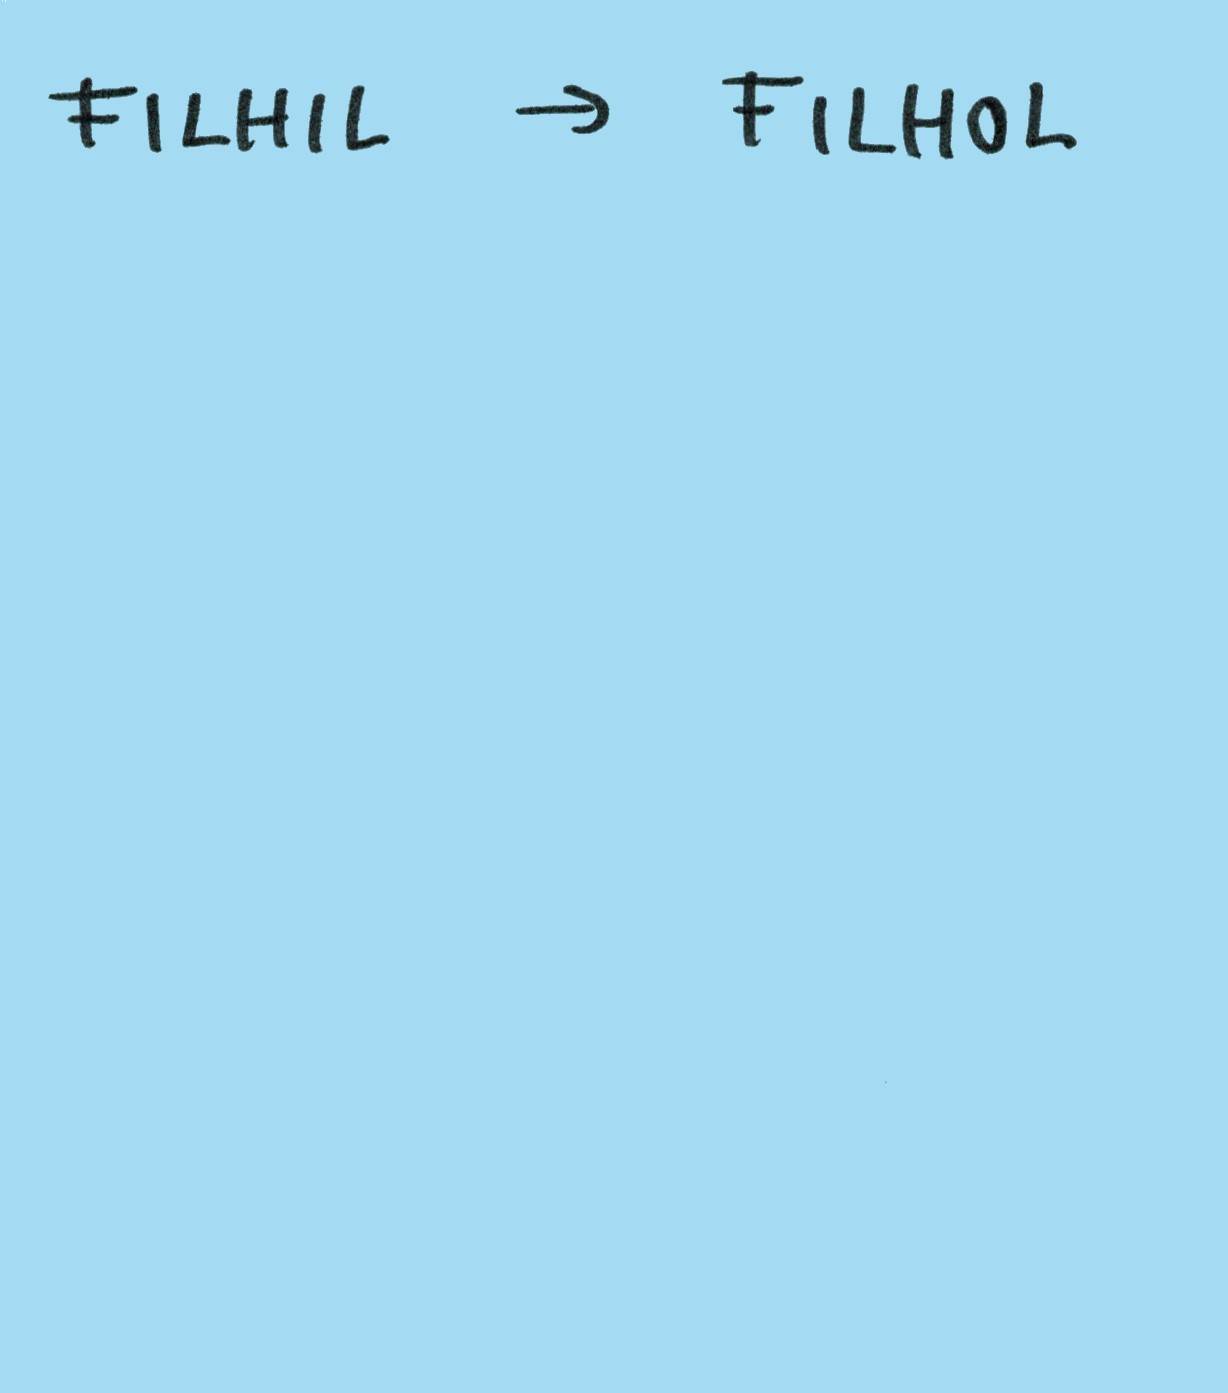 FILHIL → FILHOL